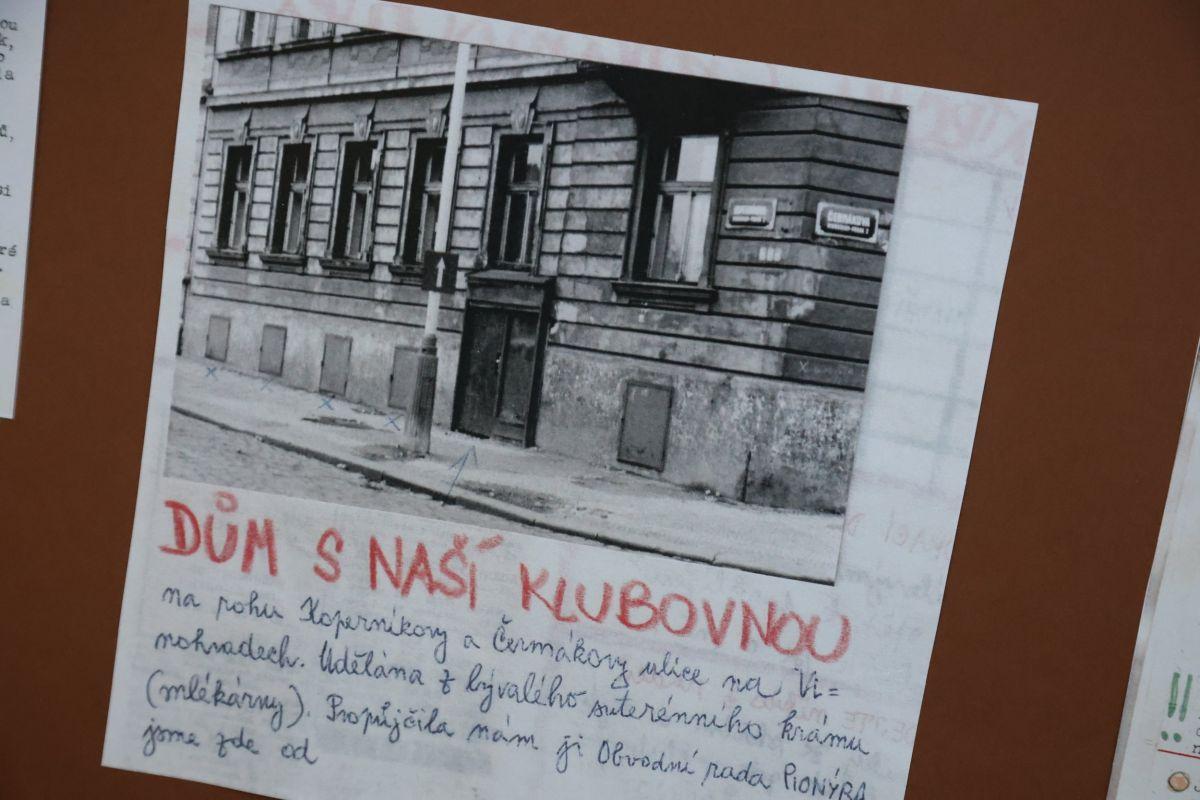 ČERMÁKOVA
DŮM S NAŠÍ KLUBOVNOU
na rohu Koperníkovy a Čermákovy ulice na Vi=
nohradech. Udělána z bývalého suterénního krámu
(mlékárny). Propůjčila nám ji Obvodní rada PIONÝRA
jsme zde od